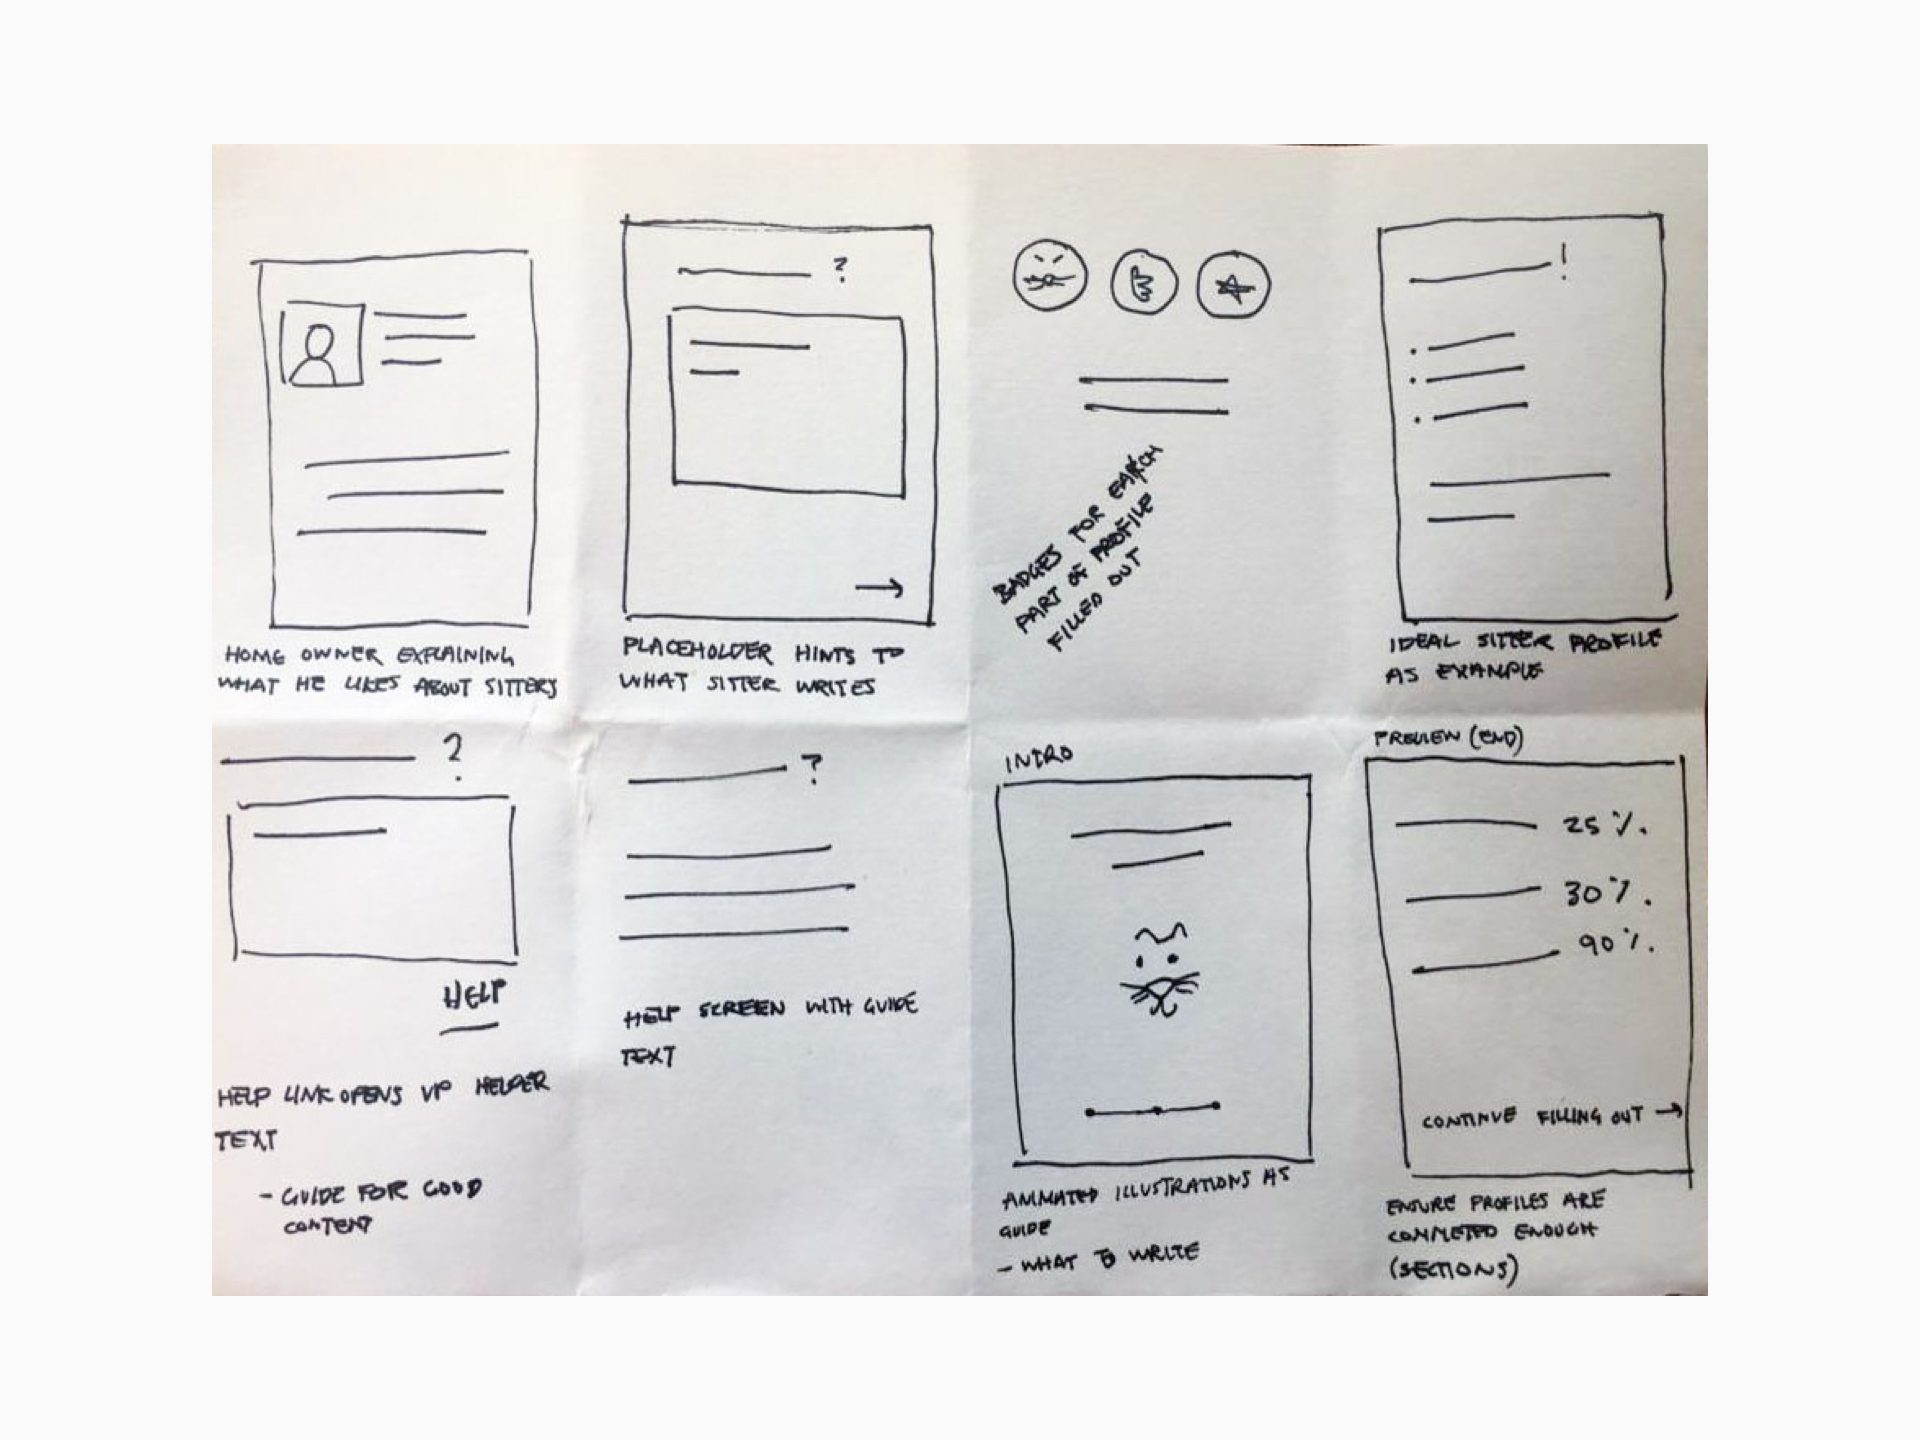 ?
!
HOME OWNER EXPLAINING
WHAT HE LIKES ABOUT SITTERS
PLACEHOLDER HINTS TO
WHAT SITTER WRITES
BADGES FOR EACH
PART OF PROFILE
FILLED OUT
IDEAL SITTER PROFILE
AS EXAMPLE
?
HELP
HELP LINK OPENS UP HELPER
TEXT
- GUIDE FOR GOOD
CONTENT
?
HELP SCREEN WITH GUIDE
TEXT
INTRO
ANIMATED ILLUSTRATIONS AS
GUIDE
- WHAT TO WRITE
PREVIEW (END)
25 %.
30 %.
90 %.
CONTINUE FILLING OUT →
ENSURE PROFILES ARE
COMPLETED ENOUGH
(SECTIONS)